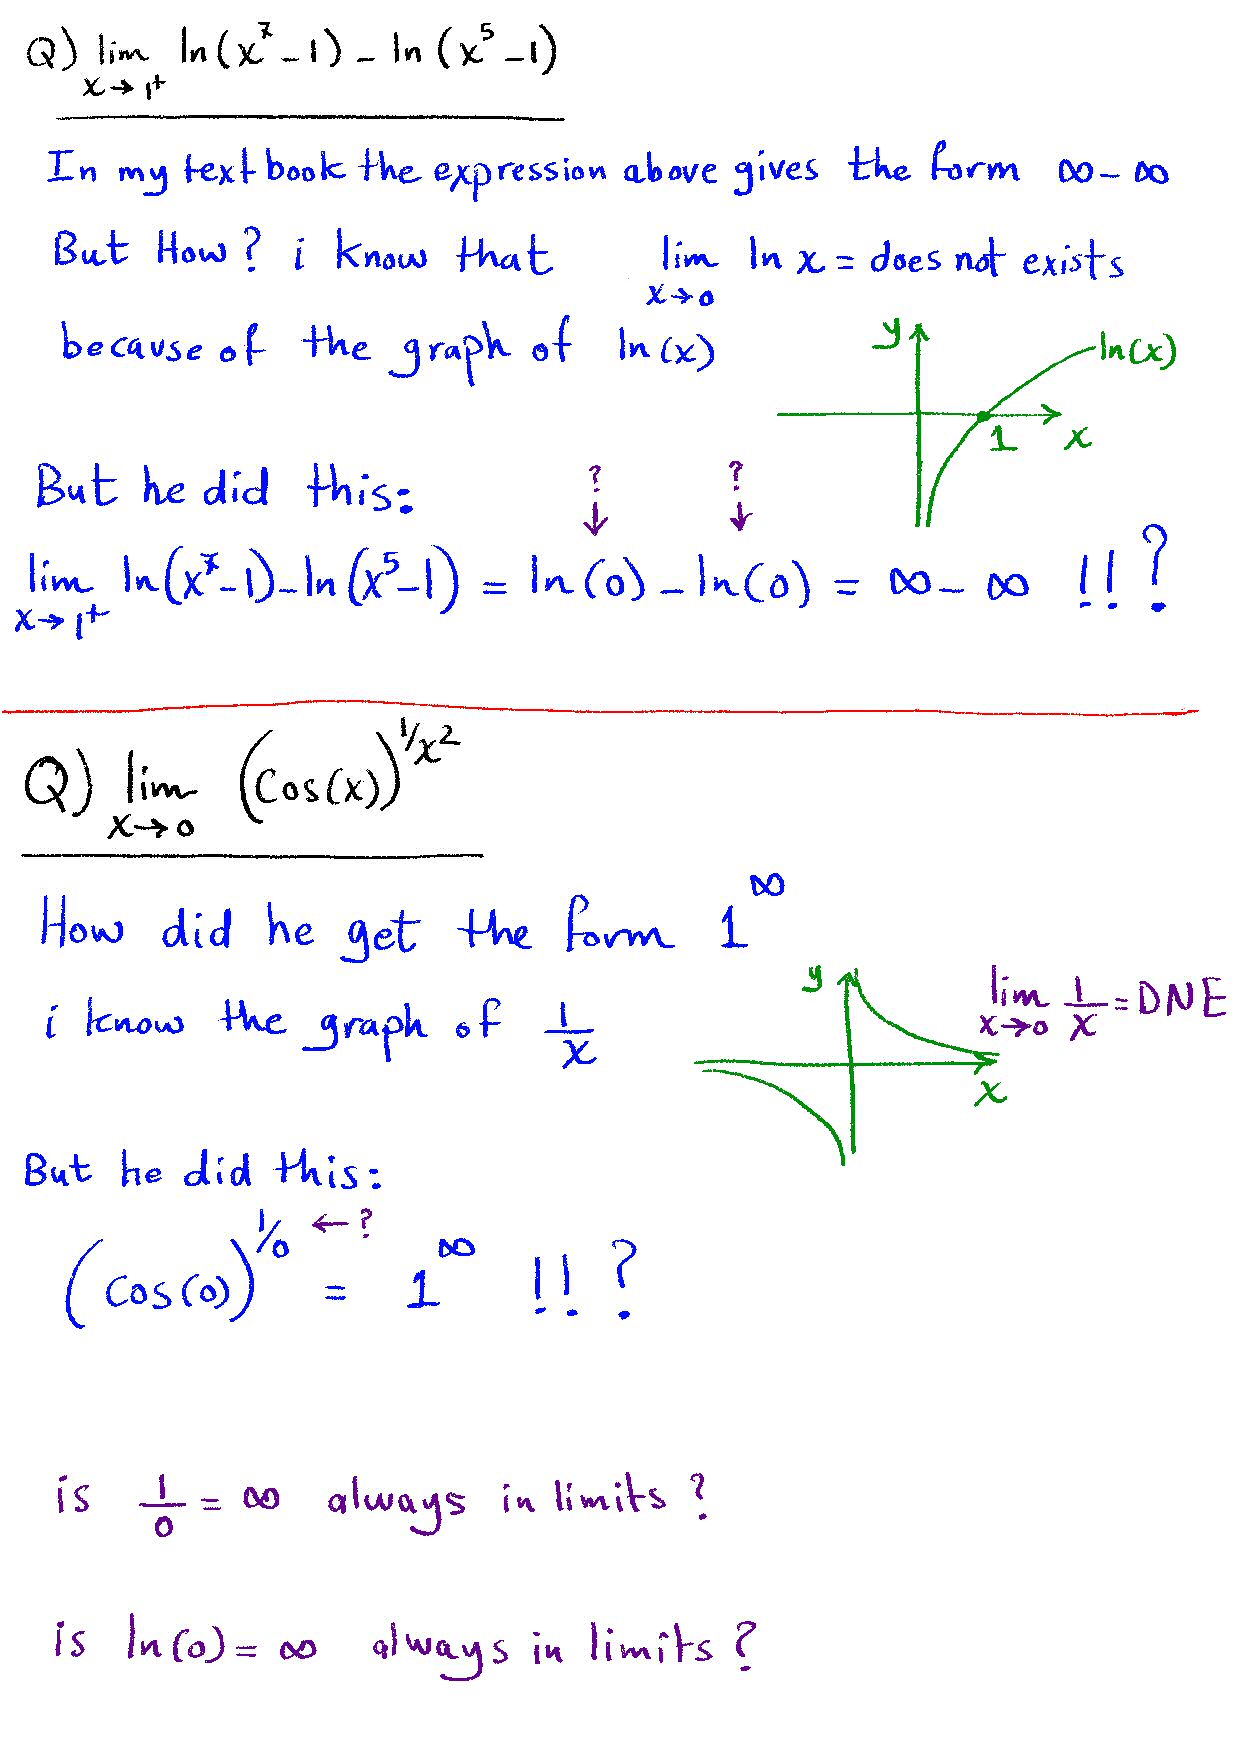 Q) lim ln(x⁷-1) - ln(x⁵-1)
x→1⁺
In my textbook the expression above gives the form ∞-∞
But How? i know that lim ln x = does not exists
x→0
because of the graph of ln(x)
y
ln(x)
1
x
But he did this:
? ?
↓ ↓
lim ln(x⁷-1)-ln(x⁵-1) = ln(0) - ln(0) = ∞-∞ !! ?
x→1⁺
Q) lim (Cos(x))^1/x²
x→0
How did he get the form 1^∞
i know the graph of 1/x
y
x
lim 1/x = DNE
x→0
But he did this:
(Cos(0))^1/0 ←? = 1^∞ !! ?
is 1/0 = ∞ always in limits ?
is ln(0) = ∞ always in limits ?